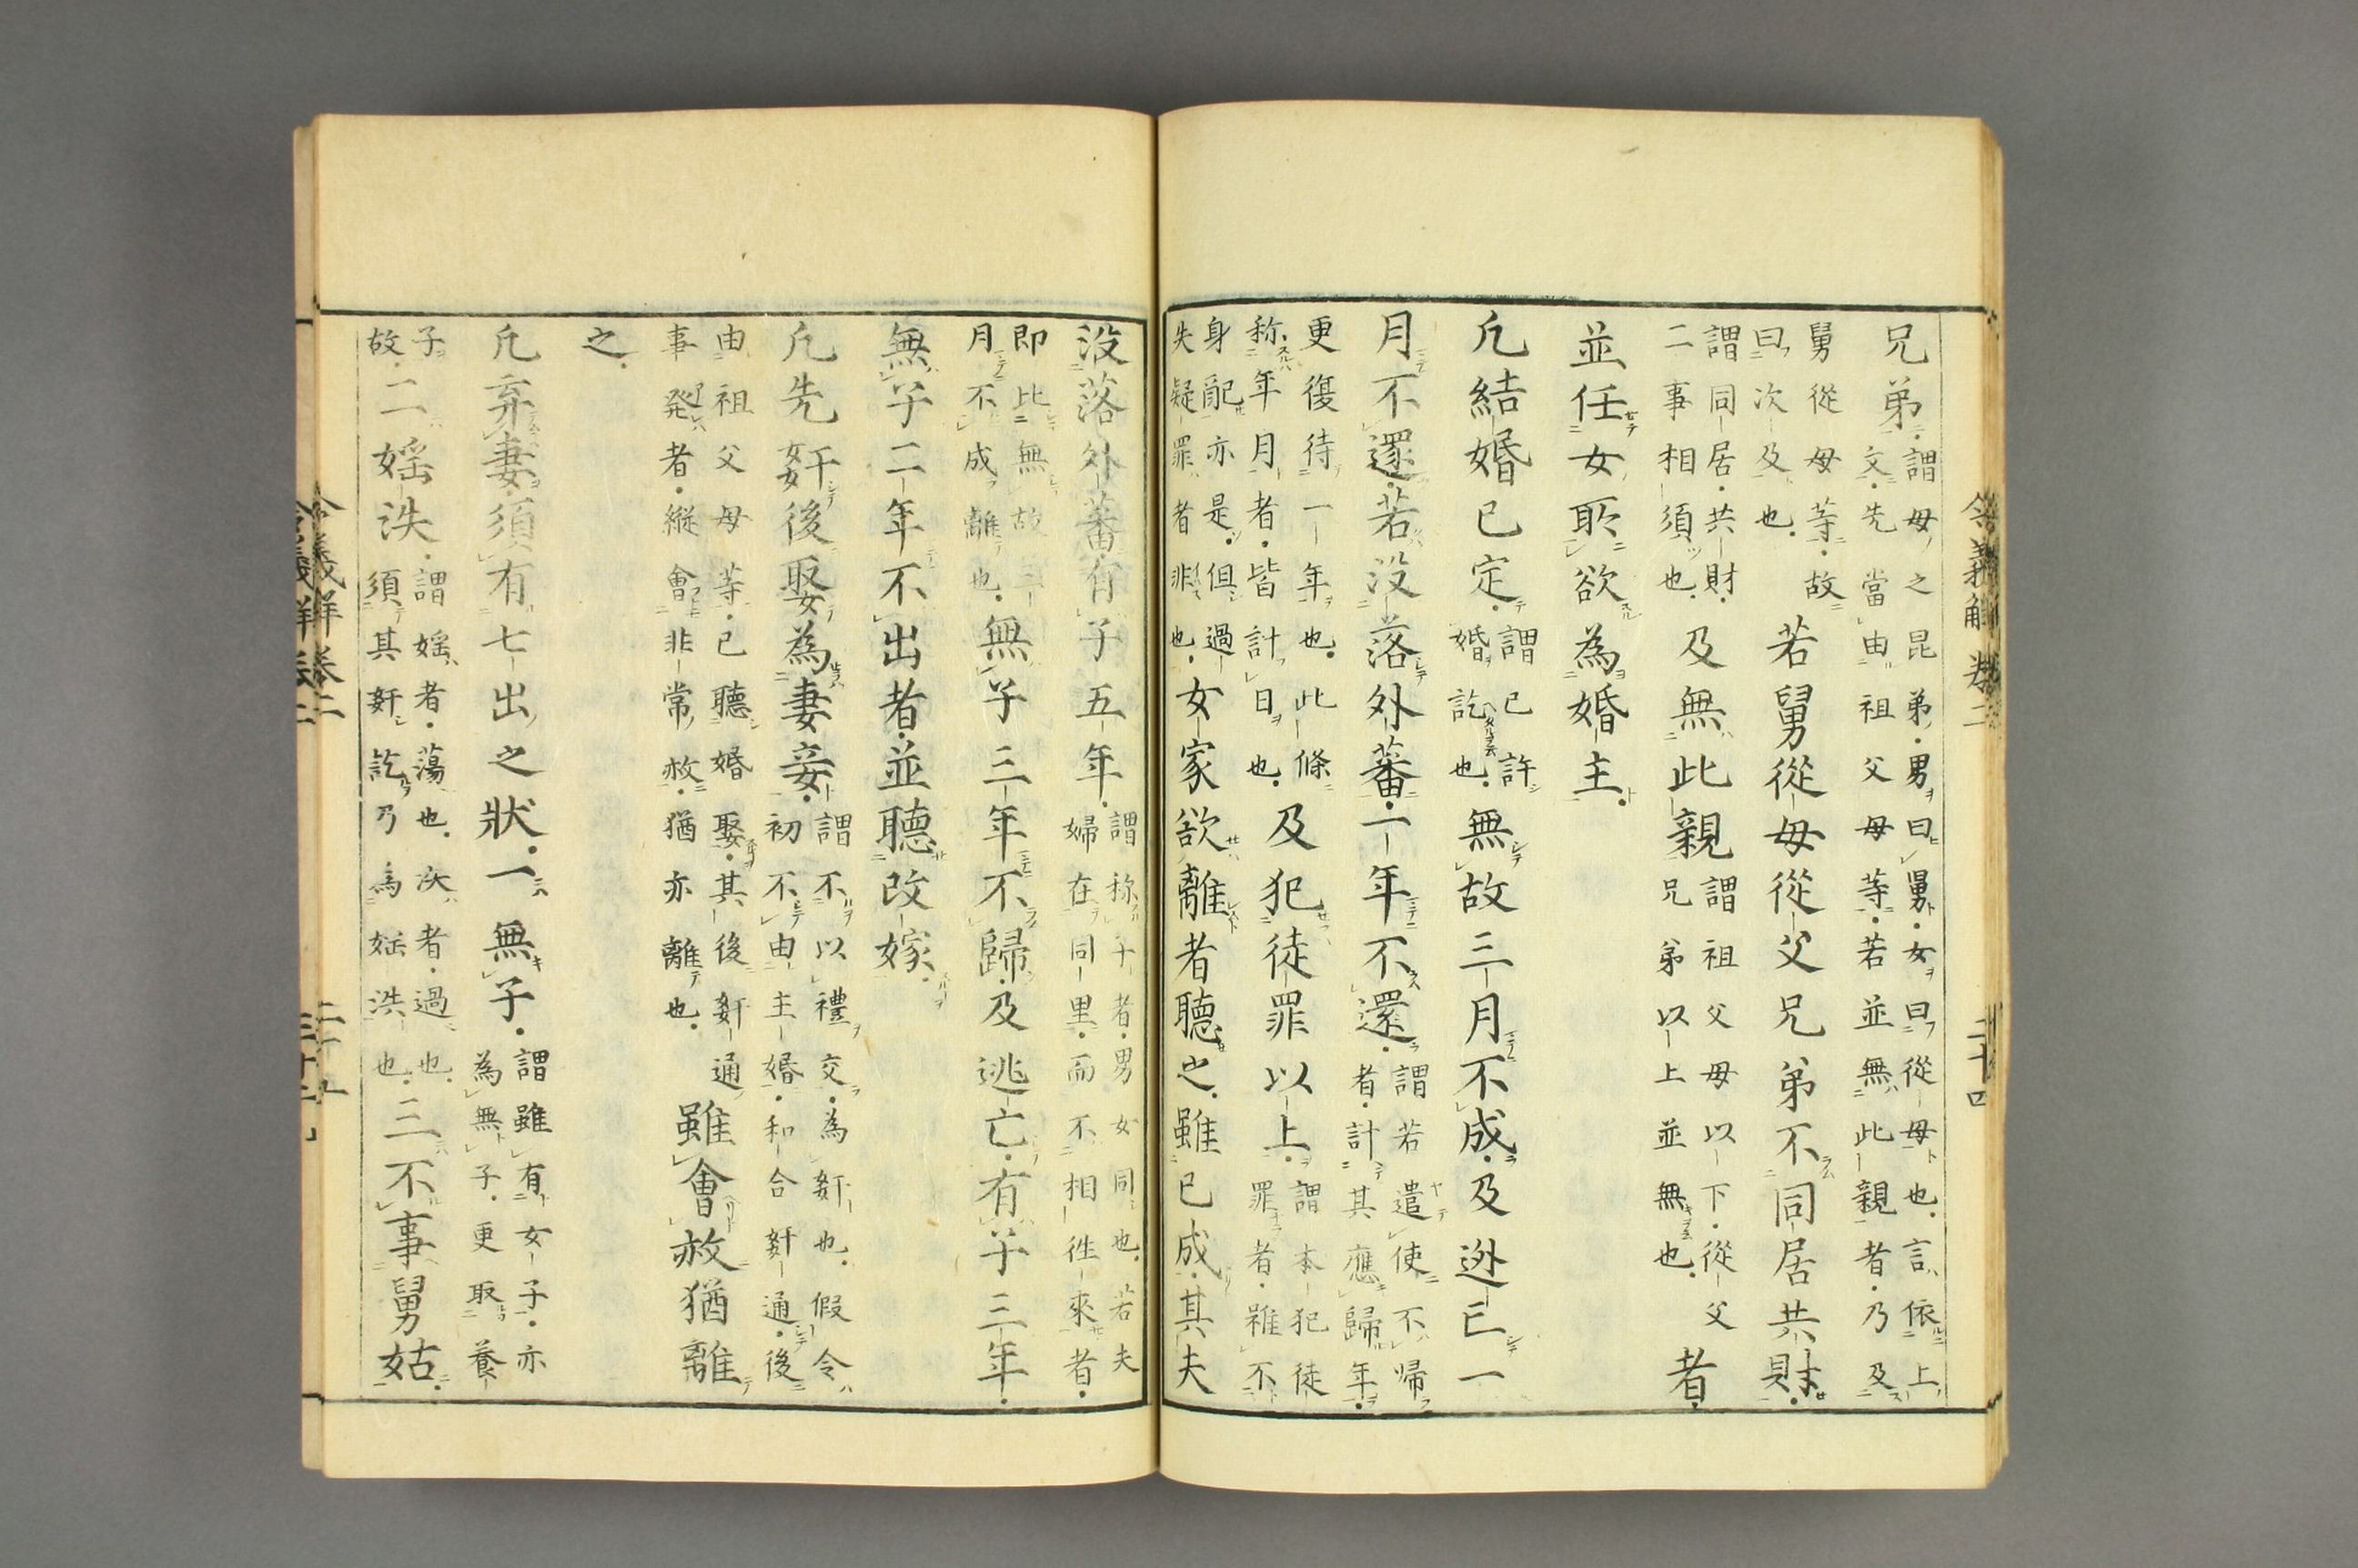 令義解 卷二 二十四
兄弟。謂母之昆弟。男曰舅。女曰從母也。言依上文。先當由祖父母等。若並無此親者。乃及
舅從母等。故曰次及也。若舅從母從父兄弟不同居共財。
謂同居。共財。二事相須也。及無此親謂祖父母以下。從父兄弟以上並無也。者。
並任女所欲為婚主。
凡結婚已定。謂已許婚訖也。無故三月不成。及逃亡一
月不還。若没落外蕃。一年不還。謂若遣使不帰者。計其應歸年。
更復待一年也。此條称年月者。皆計日也。及犯徒罪以上。謂本犯徒罪者。雖不
身配亦是。但過失疑罪者非也。女家欲離者聽之。雖已成。其夫
没落外蕃。有子五年。謂称子者。男女同也。若夫婦在同里。而不相徃來者。
即比無故三月不成離也。無子三年不歸。及逃亡。有子三年。
無子二年不出者。並聽改嫁。
凡先姧後娶為妻妾。謂不以禮交。為姧也。假令初不由主婚。和合姧通。後
由祖父母等。已聽婚娶。其後姧通事発者。縱會非常赦。猶亦離也。雖會赦猶離
之。
凡弃妻。須有七出之狀。一無子。謂雖有女子。亦為無子。更取養
子故。二婬泆。謂婬者。蕩也。泆者。過也。須其姧訖乃為婬泆也。三不事舅姑。